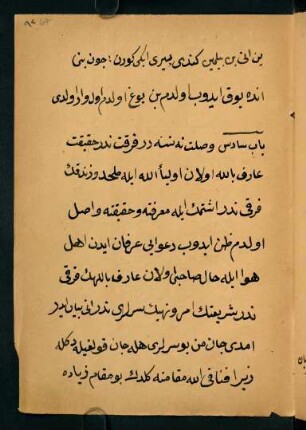 بن انی بن بیلمین کندی بیری ایکی کورن؛ چون بنی
انده یوق ایدوب ولدم بن یوغ اولدم اول وار ولدی
باب سادس وصلت نه‌سنه در فرقت ندر حقیقت
عارف بالله اولان اولیأ الله ایله ملحد و زندقك
فرقی ندر اشتمك ایله معرفته و حقیقته واصل
اولدم ظن ایدوب دعوایی عرفان ایدن اهل
هوا ایله حال صاحبی ولان عارف باللهك فرقی
ندر شریعتك امر و نهینك سرلری ندر انی بیان ایدر
امدی جان من بو سرلری هله جان قولغیله دکله
زیرا فنا فی الله مقامنه کلدك بو مقام زیاده